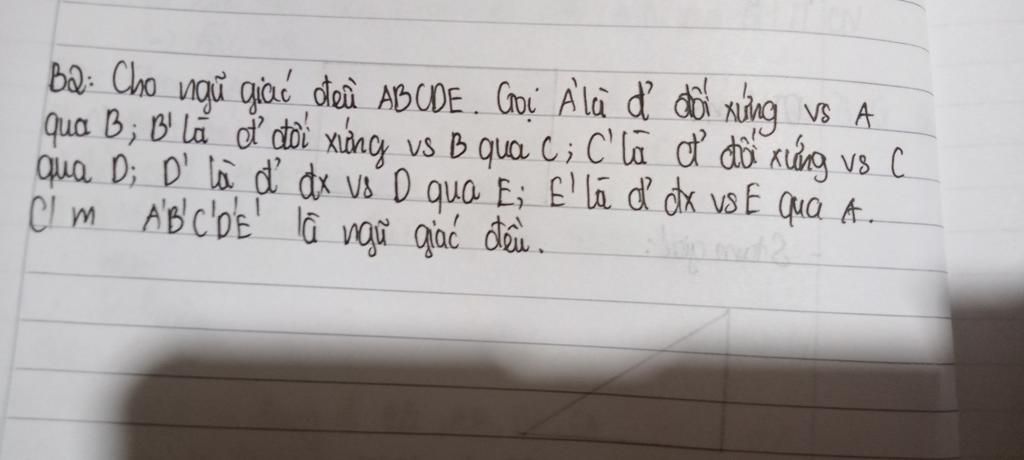 B2: Cho ngũ giác đều ABCDE. Gọi A' là đ' đối xứng vs A
qua B; B' là đ' đối xứng vs B qua C; C' là đ' đối xứng vs C
qua D; D' là đ' đx vs D qua E; E' là đ' đx vs E qua A.
C/m A'B'C'D'E' là ngũ giác đều.